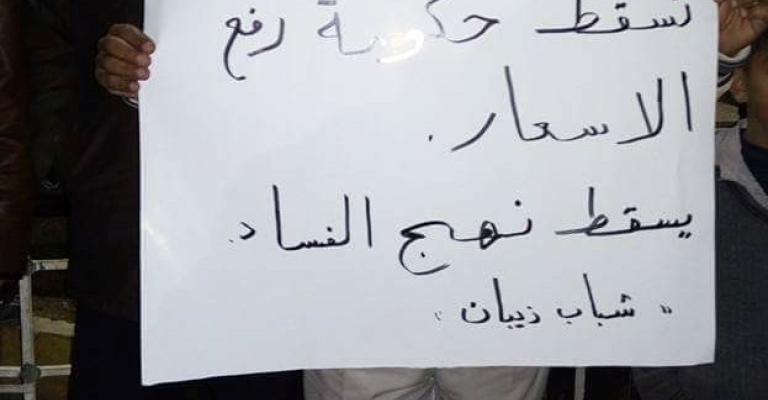 تسقط حكومة رفع
الاسعار.
يسقط نهج الفساد.
" شباب ذيبان "